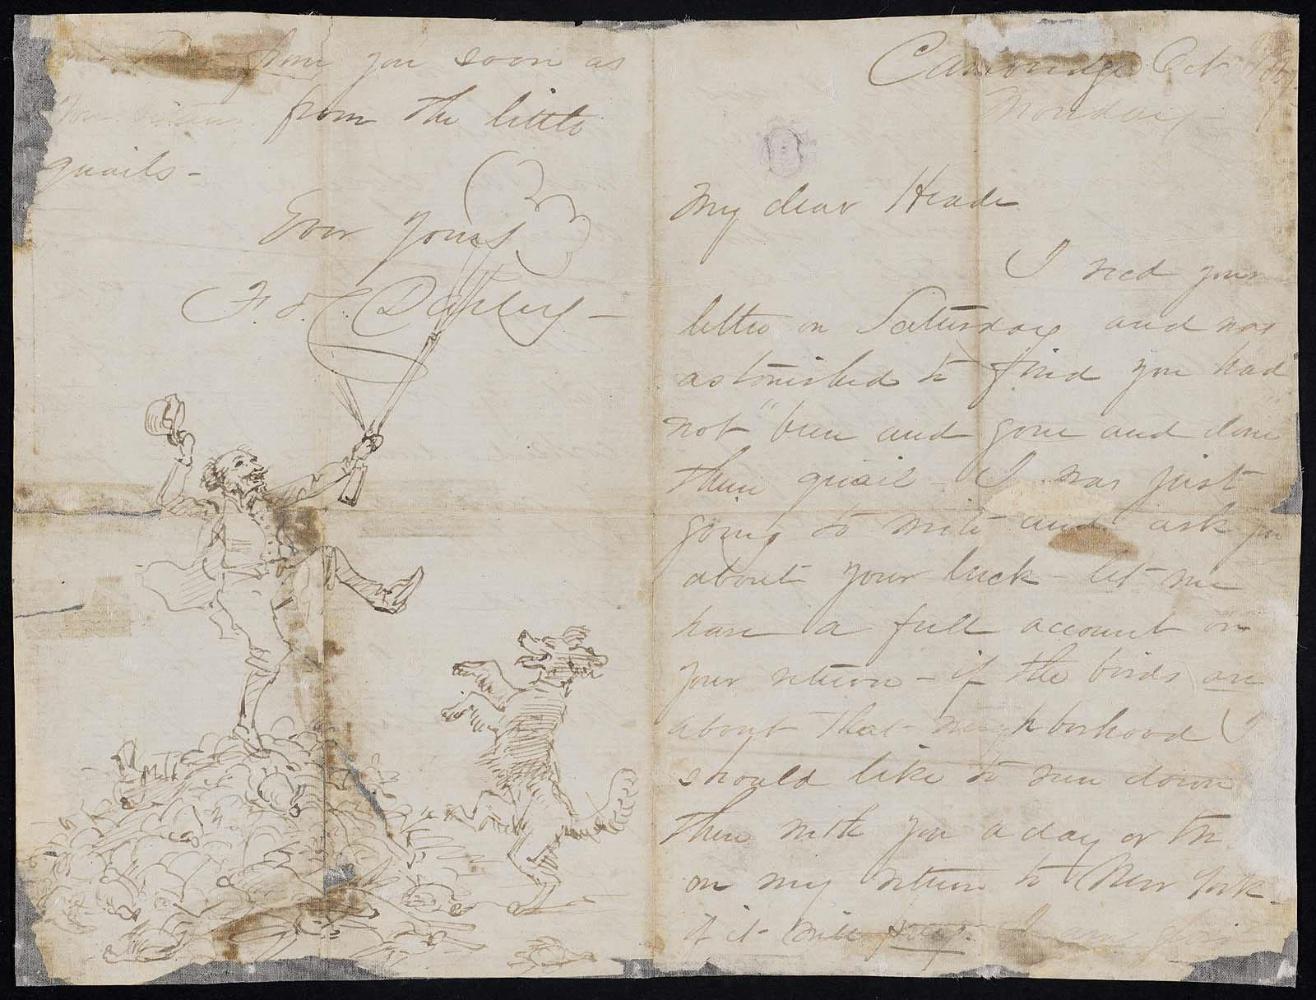 Cambridge Oct
Monday -
My dear Heade
I recd your
letter on Saturday and was
astonished to find you had
not "been and gone and done
them quail - I was just
going to write and ask you
about your luck - let me
have a full account on
your return - if the birds are
about that neighborhood I
should like to run down
there with you a day or two
on my return to New York -
if it will pay. I am
from you soon as
you return from the little
quails -
Ever yours
F. O. C. Darley -